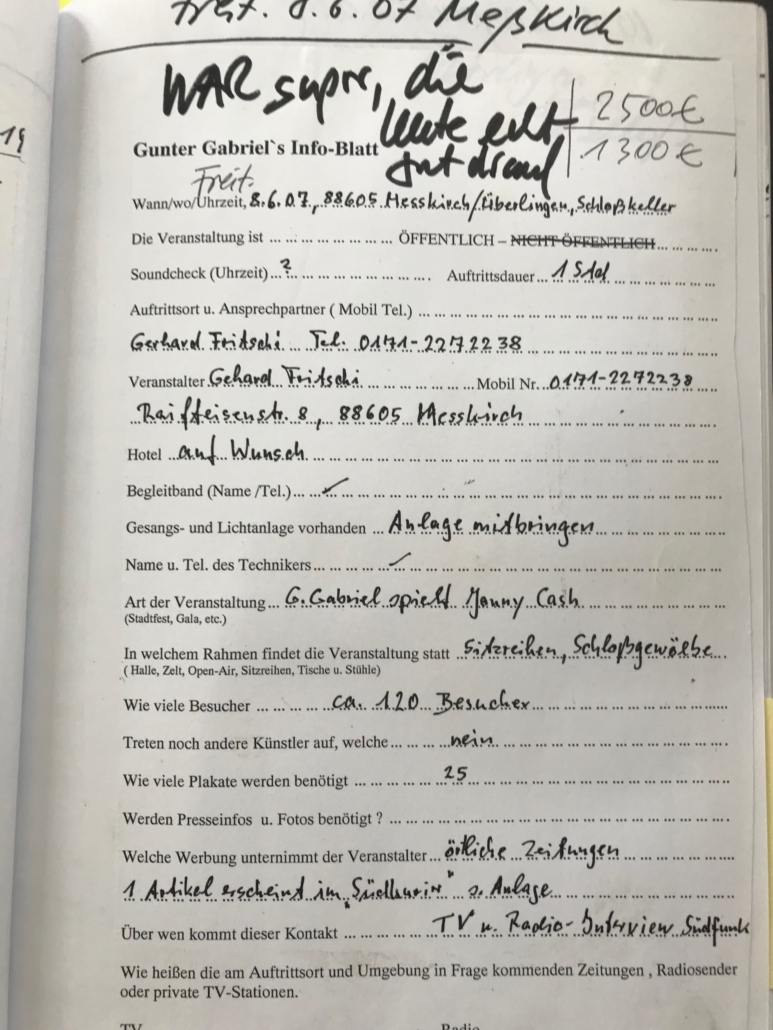 Freit. 8.6.07 Meßkirch
19
WAR super, die
Leute echt
gut drauf
2500€
1300€
Gunter Gabriel`s Info-Blatt
Freit.
Wann/wo/Uhrzeit, 8.6.07, 88605 Messkirch/Überlingen, Schloßkeller
Die Veranstaltung ist ... ... ... ... ... ... ... ... ÖFFENTLICH – NICHT ÖFFENTLICH ... ... ... ...
Soundcheck (Uhrzeit) ... ? ... ... ... ... ... ... ... ... Auftrittsdauer ... 1 Std ... ... ... ... ... ...
Auftrittsort u. Ansprechpartner ( Mobil Tel.) ... ... ... ... ... ... ... ... ... ... ... ... ... ... ...
Gerhard Fritschi Tel. 0171-2272238
Veranstalter Gehard Fritschi ... ... ... ... ... ... Mobil Nr. 0171-2272238
Raiffeisenstr. 8, 88605 Messkirch
Hotel auf Wunsch ... ... ... ... ... ... ... ... ... ... ... ... ... ... ... ... ... ...
Begleitband (Name /Tel.) ... ... ... ... ... ... ... ... ... ... ... ... ... ... ... ... ... ... ...
Gesangs- und Lichtanlage vorhanden ... Anlage mitbringen ... ... ... ... ...
Name u. Tel. des Technikers ... ... ... ... ... ... ... ... ... ... ... ... ... ... ... ... ... ...
Art der Veranstaltung ... G. Gabriel spielt Jonny Cash ... ... ... ... ... ...
(Stadtfest, Gala, etc.)
In welchem Rahmen findet die Veranstaltung statt Sitzreihen, Schloßgewölbe
( Halle, Zelt, Open-Air, Sitzreihen, Tische u. Stühle)
Wie viele Besucher ... ... ... ... ca. 120 Besucher ... ... ... ... ... ... ... ...
Treten noch andere Künstler auf, welche ... ... ... nein ... ... ... ... ... ... ... ... ...
Wie viele Plakate werden benötigt ... ... ... ... 25 ... ... ... ... ... ... ... ... ... ...
Werden Presseinfos u. Fotos benötigt ? ... ... ... ... ... ... ... ... ... ... ... ... ... ... ...
Welche Werbung unternimmt der Veranstalter ... örtliche Zeitungen ... ... ... ...
1 Artikel erscheint im "Südkurier" s. Anlage ... ... ... ... ... ... ... ...
Über wen kommt dieser Kontakt ... ... ... ... TV u. Radio-Interview Südfunk
Wie heißen die am Auftrittsort und Umgebung in Frage kommenden Zeitungen , Radiosender
oder private TV-Stationen.
TV Radio